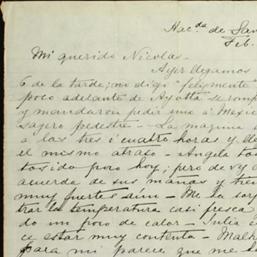 Hac.da de San
Feb.
Mi querido Nicolas.
Ayer llegamos
6 de la tarde; no digo "felizmente"
poco adelante de Ayotla se romp
y mandaron pedir una a Mexico
pedestre — La maquina
a las tres i cuatro horas y de
el mismo atraso — Angela
tosido poco hoy, pero de
acuerda de sus mañas y tien
muy fuertes aún — Me ha sor
trar la temperatura casi fresca
do un poco de calor — Julia
ce estar muy contenta —
para mi parece que me